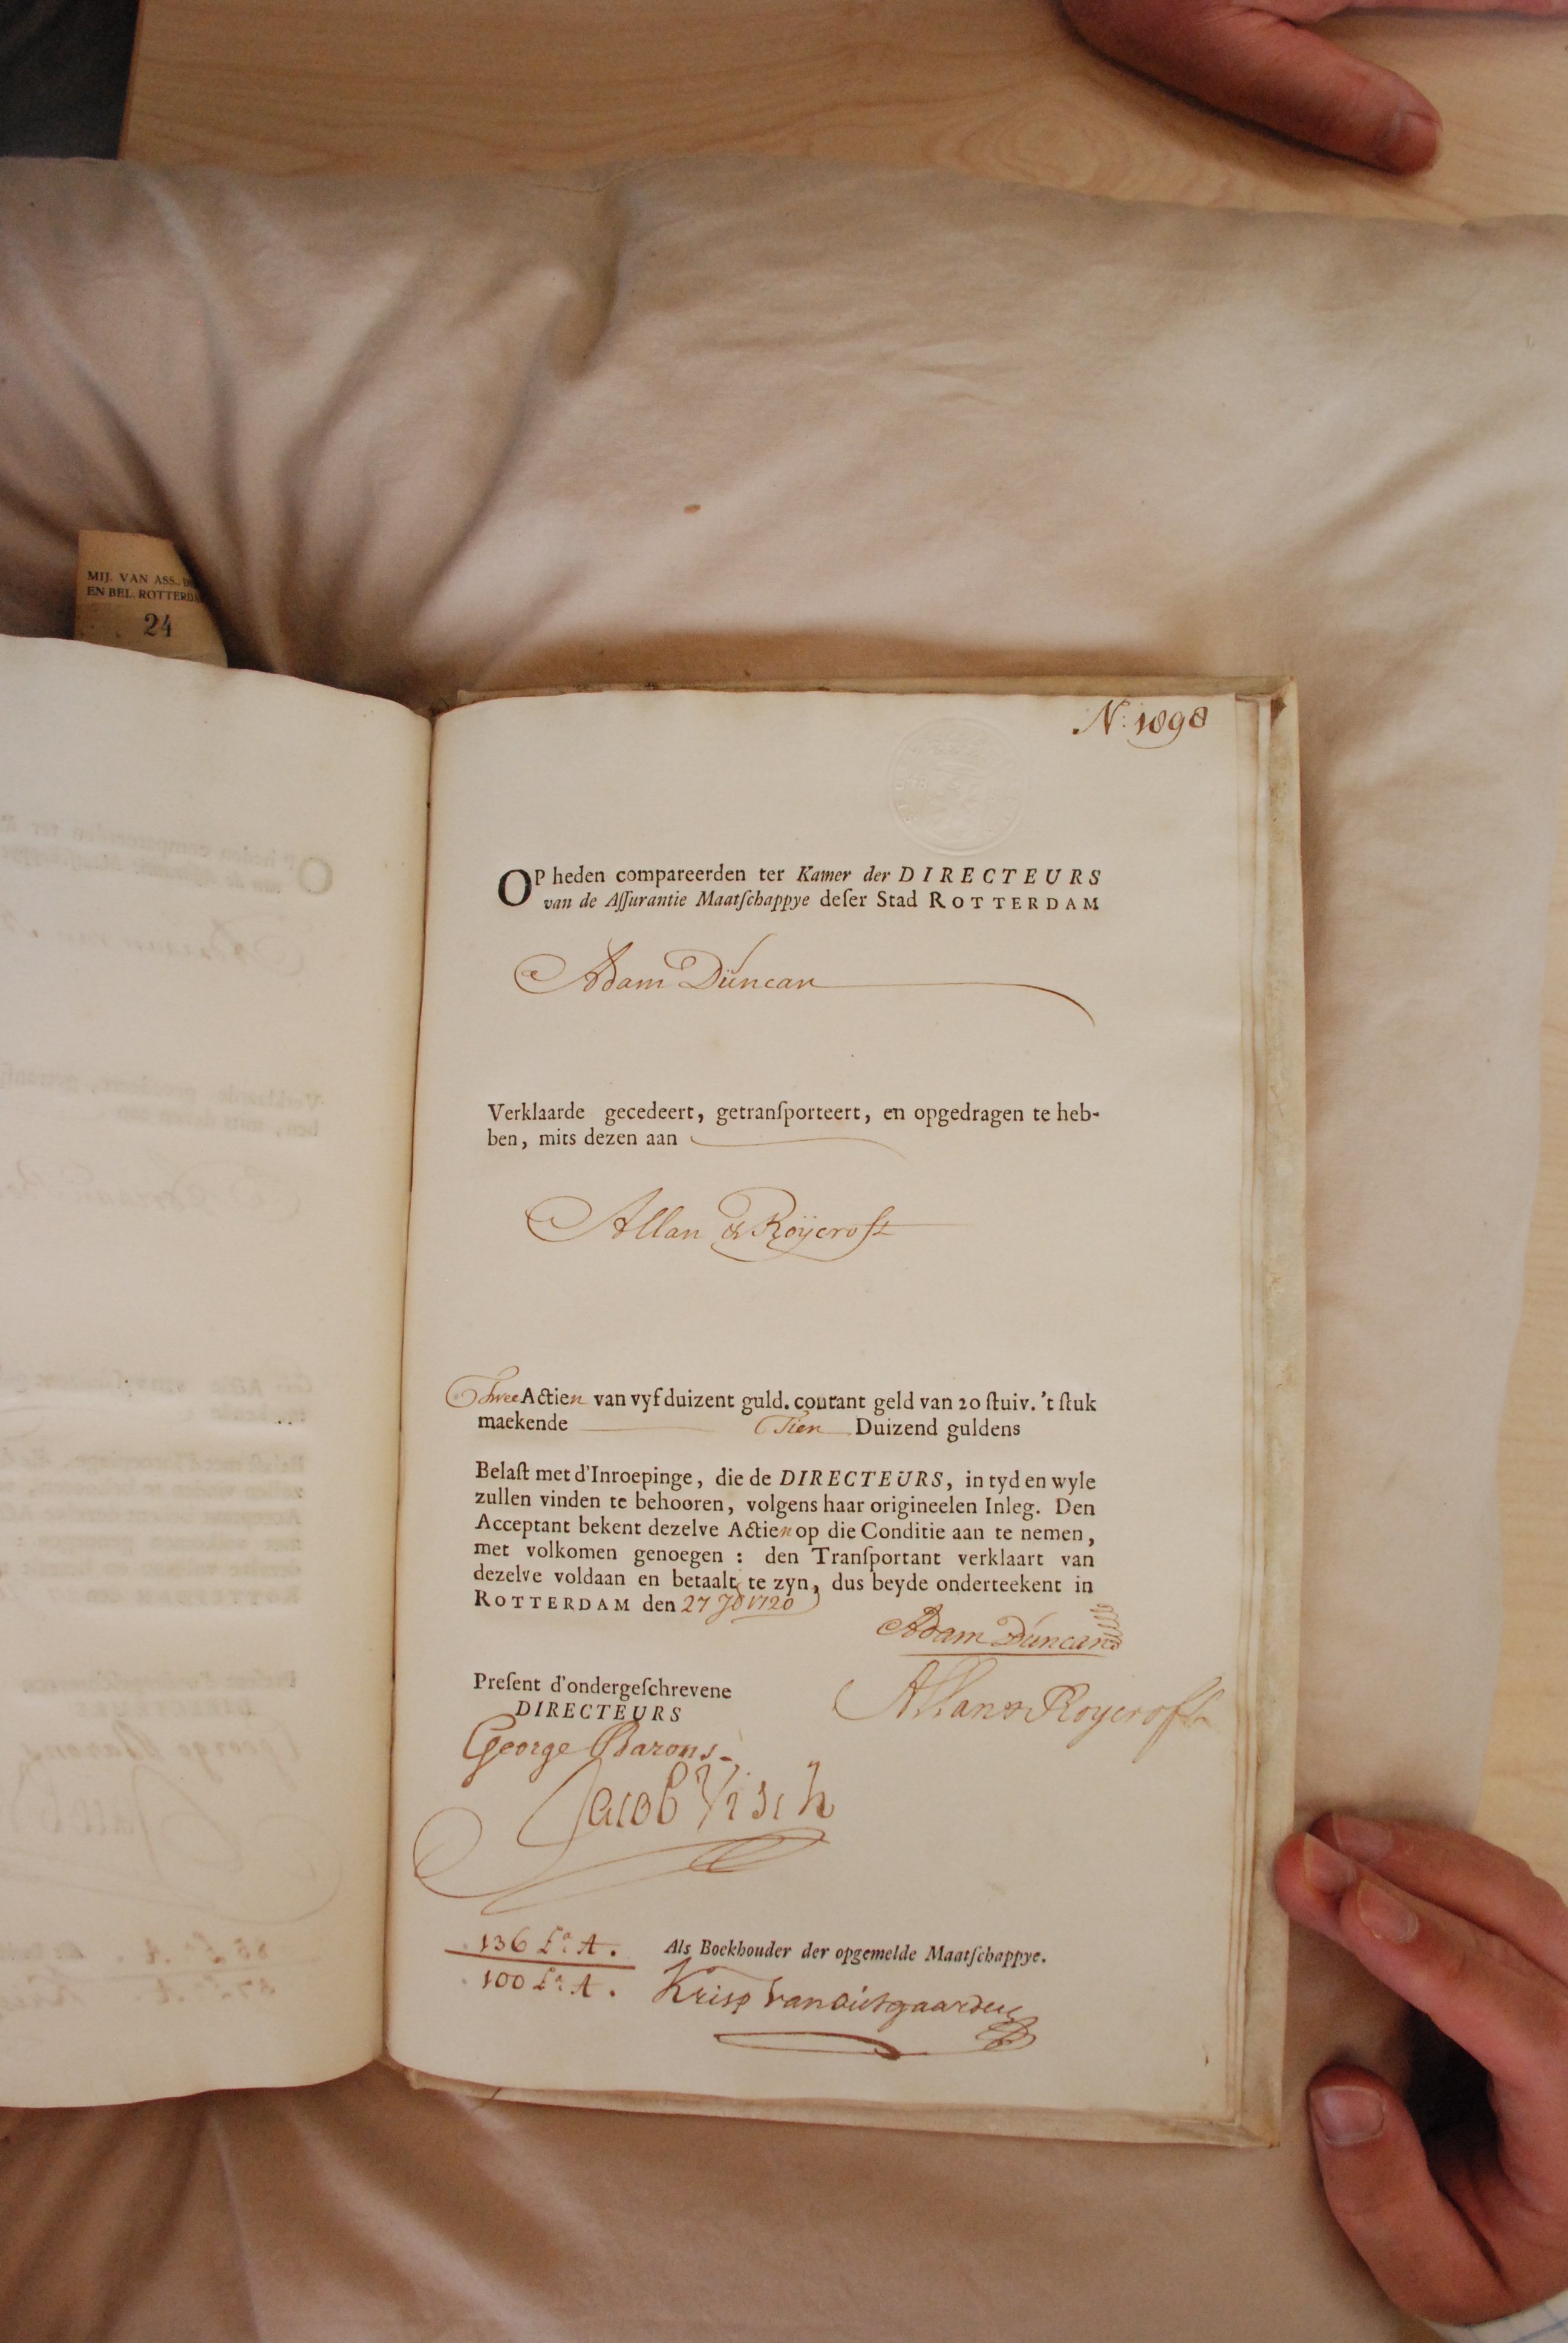 MIJ. VAN ASS.,
EN BEL. ROTTERDA
24
N: 1898
OP heden compareerden ter Kamer der DIRECTEURS
van de Aſſurantie Maatſchappye deſer Stad ROTTERDAM
Adam Duncan
Verklaarde gecedeert, getranſporteert, en opgedragen te heb-
ben, mits dezen aan
Allan & Roÿcroft
Twee Actien van vyf duizent guld. courant geld van 20 ſtuiv. 't ſtuk
maekende Tien Duizend guldens
Belaſt met d'Inroepinge, die de DIRECTEURS, in tyd en wyle
zullen vinden te behooren, volgens haar origineelen Inleg. Den
Acceptant bekent dezelve Actien op die Conditie aan te nemen,
met volkomen genoegen : den Tranſportant verklaart van
dezelve voldaan en betaalt te zyn, dus beyde onderteekent in
ROTTERDAM den 27 1720
Adam Duncan
Allan & Roycroft
Preſent d'ondergeſchrevene
DIRECTEURS
George Barons
Jacob Visch
136 La A.
100 La A.
Als Boekhouder der opgemelde Maatſchappye.
Krisp van